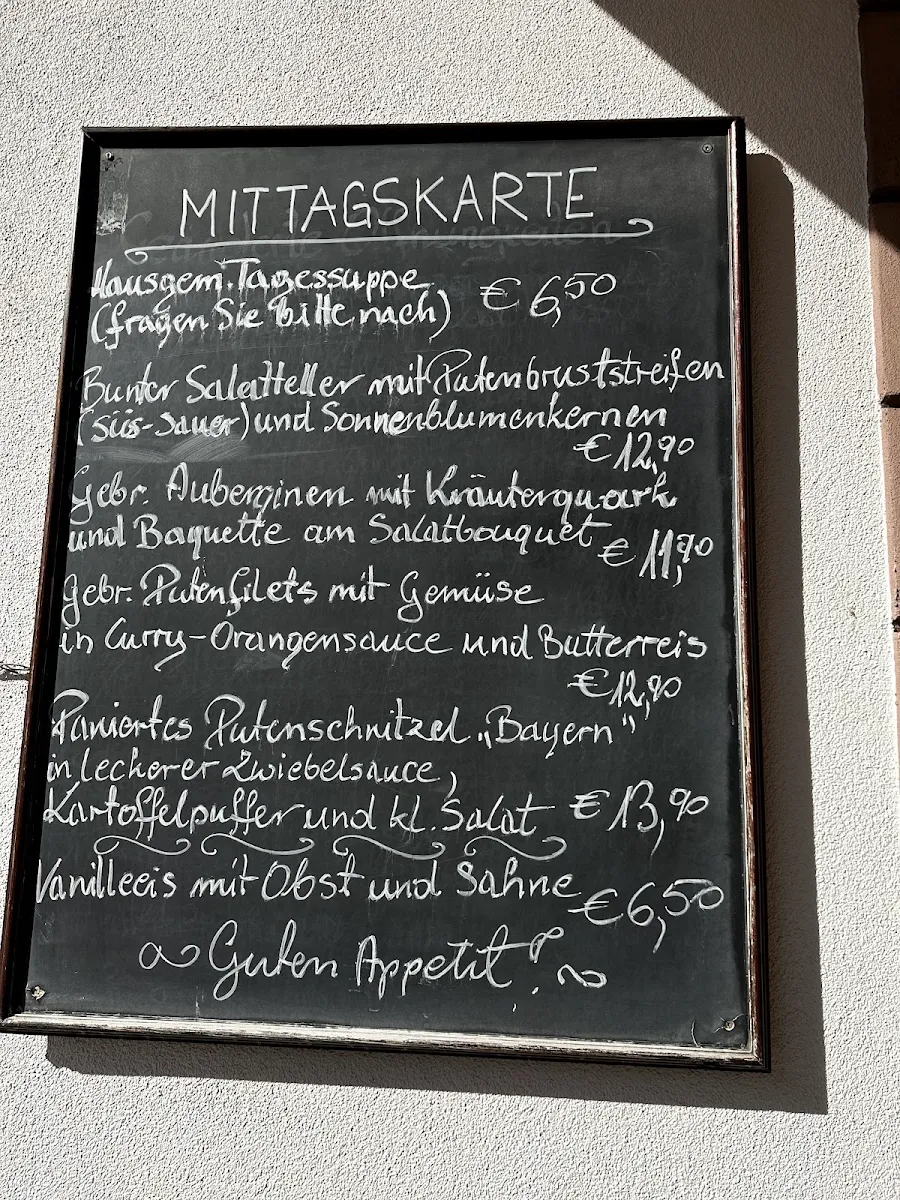 MITTAGSKARTE
Hausgem. Tagessuppe
(fragen Sie bitte nach) € 6,50
Bunter Salatteller mit Putenbruststreifen
(süs-sauer) und Sonnenblumenkernen
€ 12,90
Gebr. Auberginen mit Kräuterquark
und Baquette am Salatbouquet € 11,90
Gebr. Putenfilets mit Gemüse
in Curry-Orangensauce und Butterreis
€ 12,90
Paniertes Putenschnitzel „Bayern"
in leckerer Zwiebelsauce,
Kartoffelpuffer und kl. Salat € 13,90
Vanilleeis mit Obst und Sahne € 6,50
Guten Appetit!